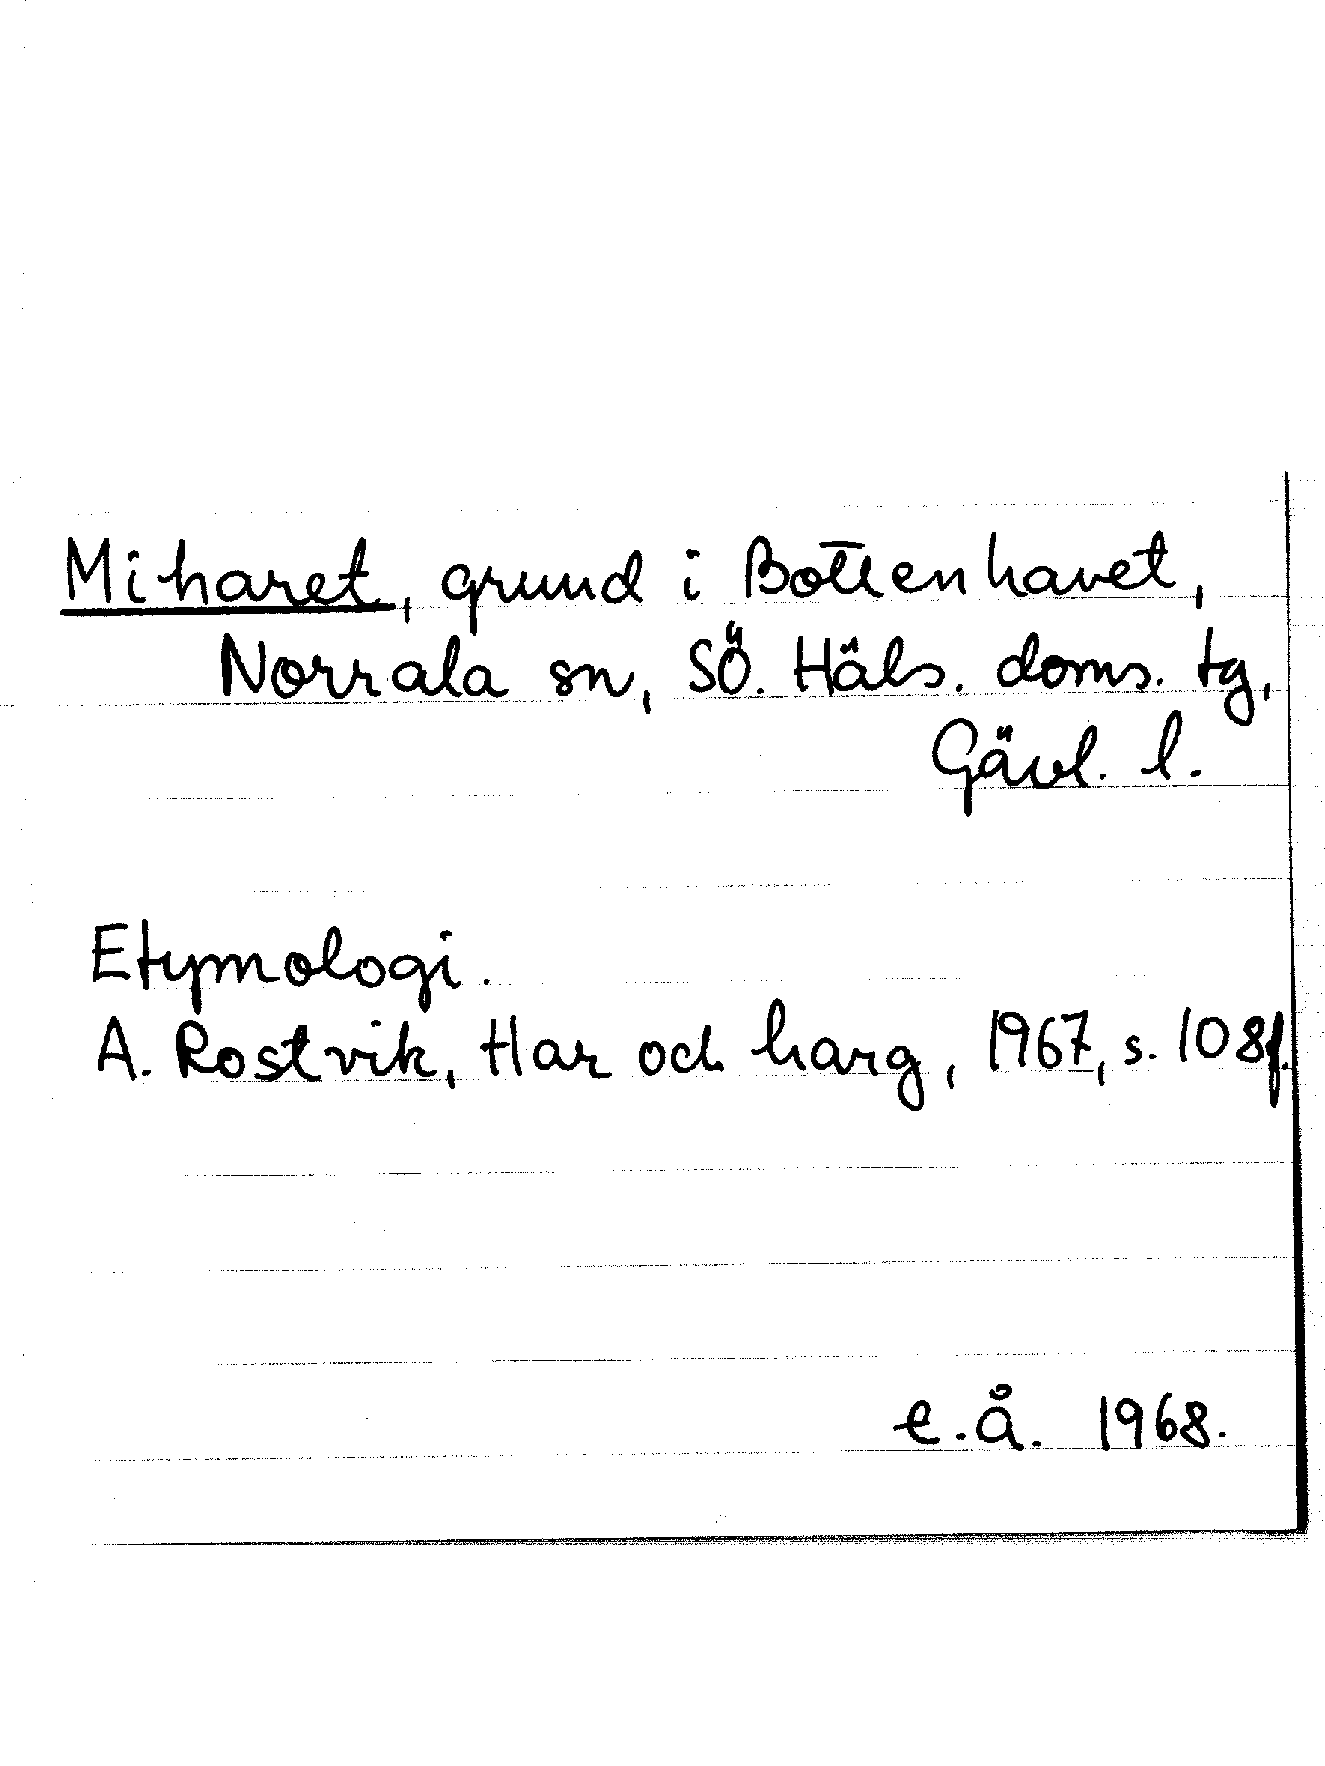 Miharet, grund i Bottenhavet,
Norrala sn, SÖ. Häls. doms. tg,
Gävl. l.
Etymologi.
A. Rostvik, Har och harg, 1967, s. 108f.
e.å. 1968.